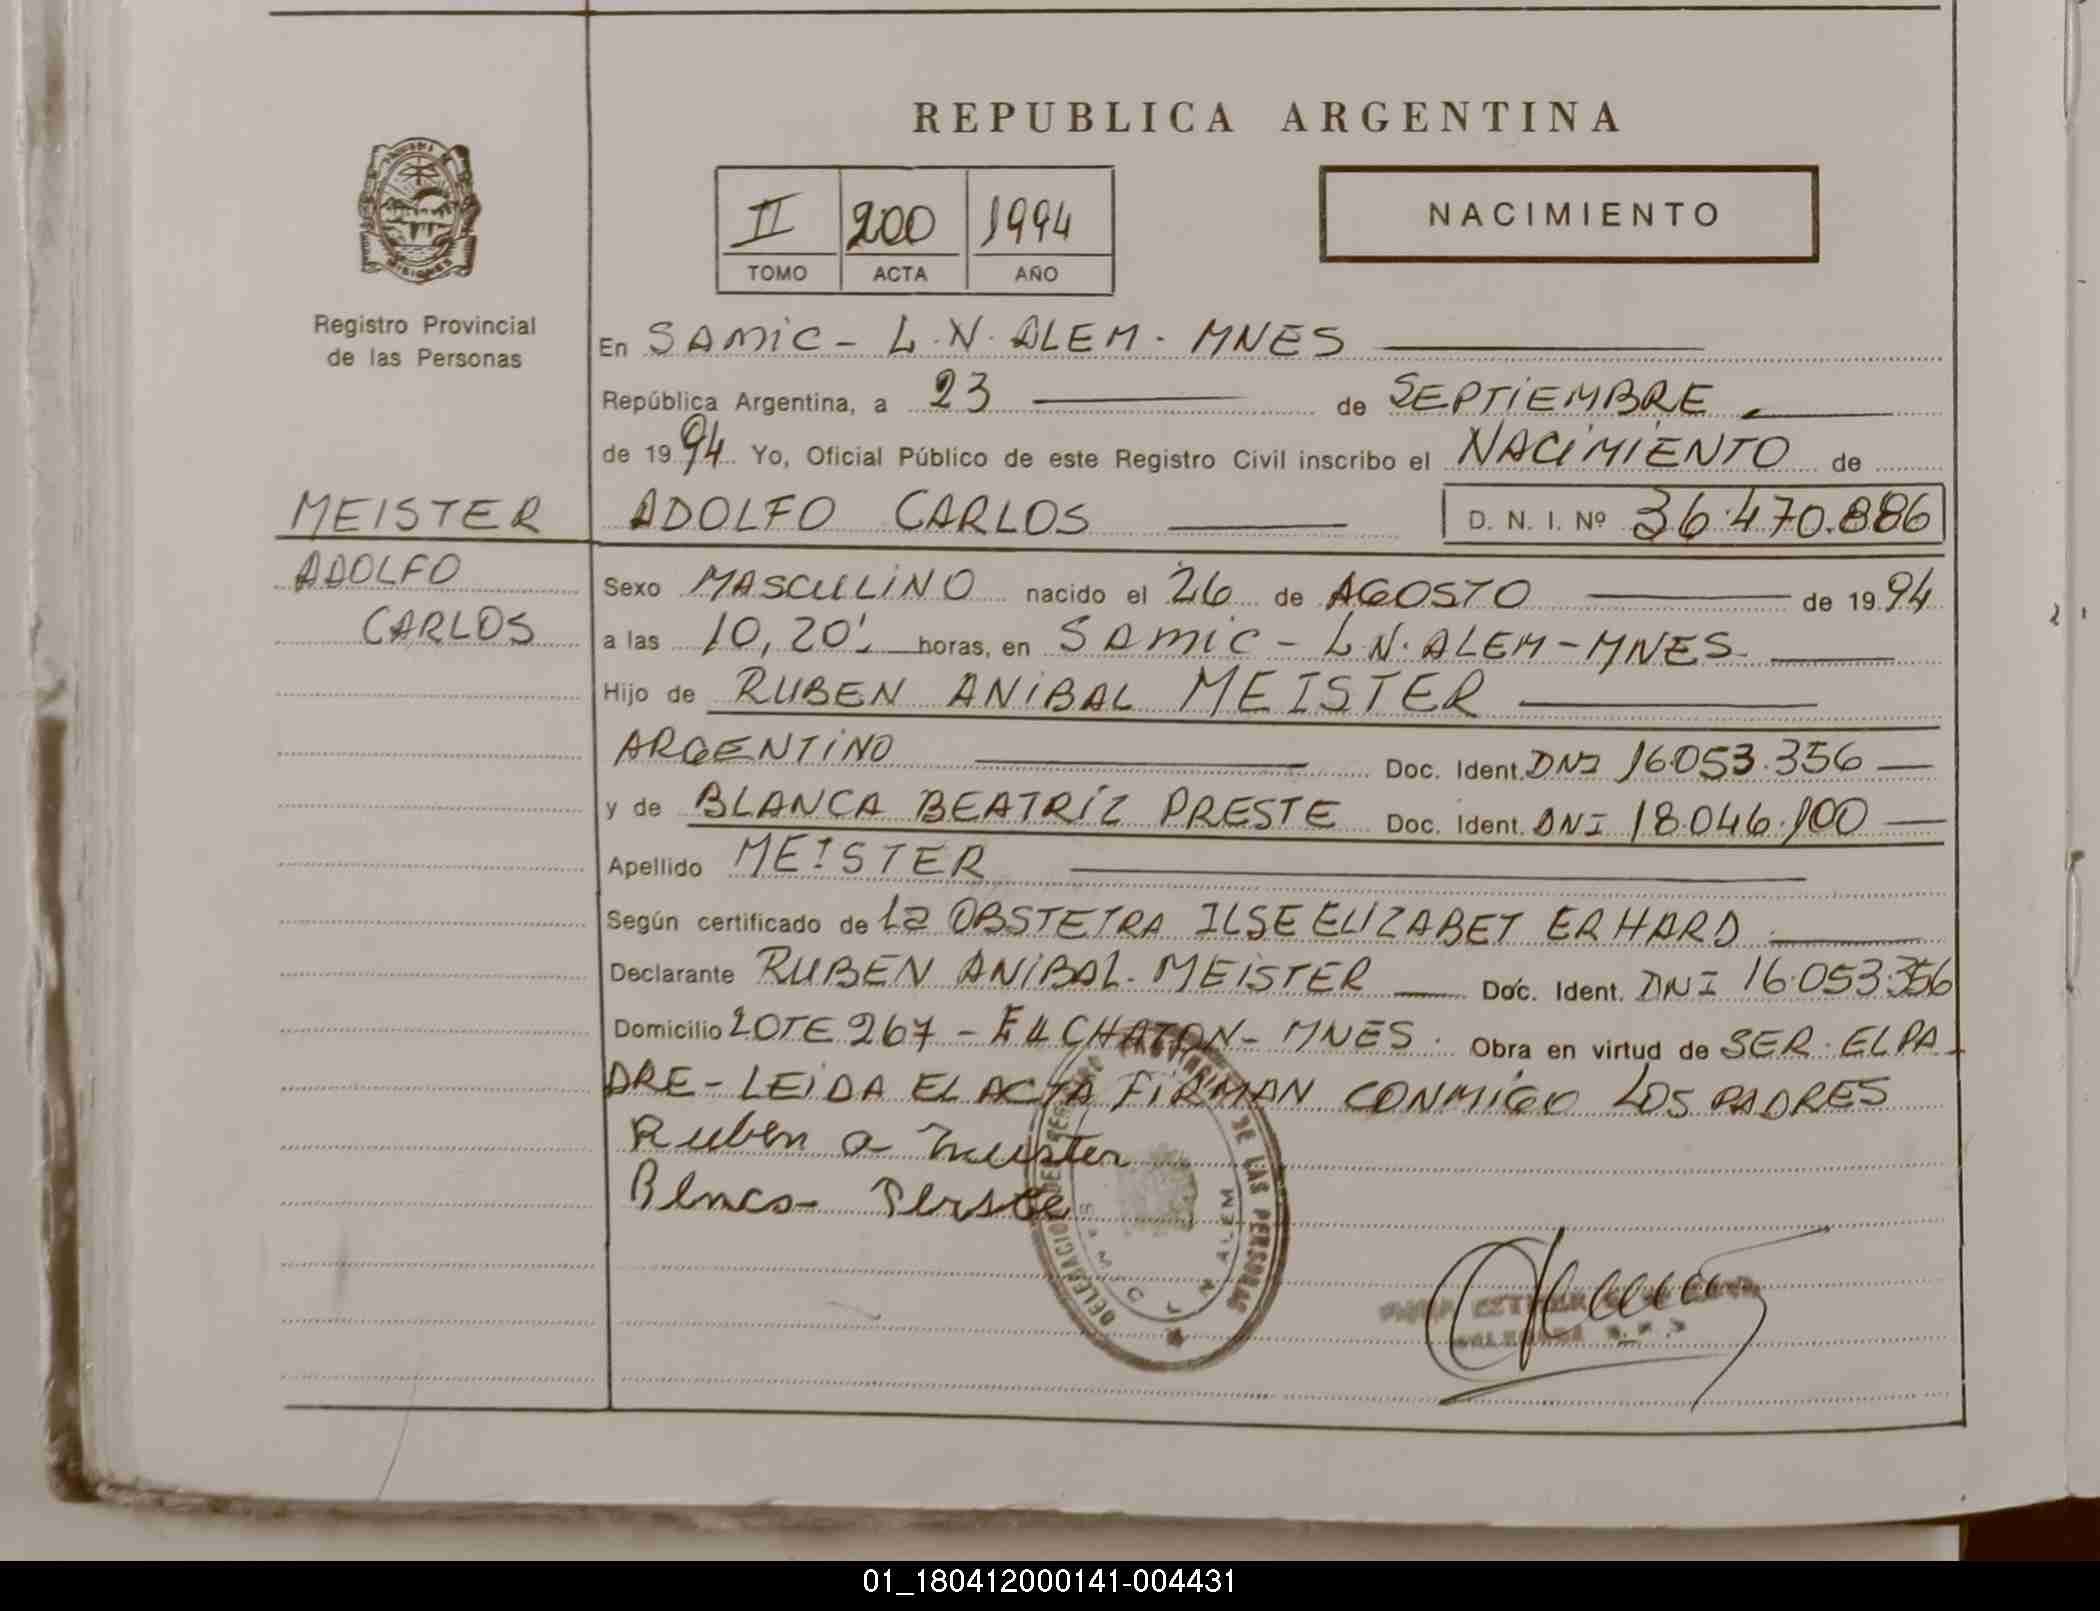 REPUBLICA ARGENTINA
II 200 1994
TOMO ACTA AÑO
NACIMIENTO
MISIONES
Registro Provincial
de las Personas
En SAMIC - L.N. ALEM - MNES
República Argentina, a 23 de SEPTIEMBRE
de 1994 Yo, Oficial Público de este Registro Civil inscribo el NACIMIENTO de
MEISTER
ADOLFO
CARLOS
ADOLFO CARLOS D. N. I. Nº 36.470.886
Sexo MASCULINO nacido el 26 de AGOSTO de 1994
a las 10,20' horas, en SAMIC - L.N. ALEM - MNES
Hijo de RUBEN ANIBAL MEISTER
ARGENTINO Doc. Ident. DNI 16.053.356
y de BLANCA BEATRIZ PRESTE Doc. Ident. DNI 18.046.100
Apellido MEISTER
Según certificado de La OBSTETRA ILSE ELIZABET ERHARD
Declarante RUBEN ANIBAL MEISTER Doc. Ident. DNI 16.053.356
Domicilio LOTE 267 - EL CHATON - MNES. Obra en virtud de SER EL PA
DRE - LEIDA EL ACTA FIRMAN CONMIGO LOS PADRES
Ruben a Meister
DE LAS PERSONAS
SAMIC L N ALEM
01_180412000141-004431